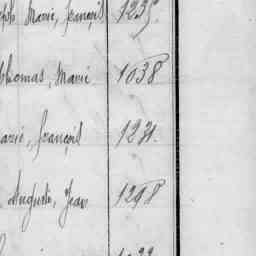 Marie, François 1235.
Thomas, Marie 1038
Marie, François 1231.
Auguste, Jean 1298